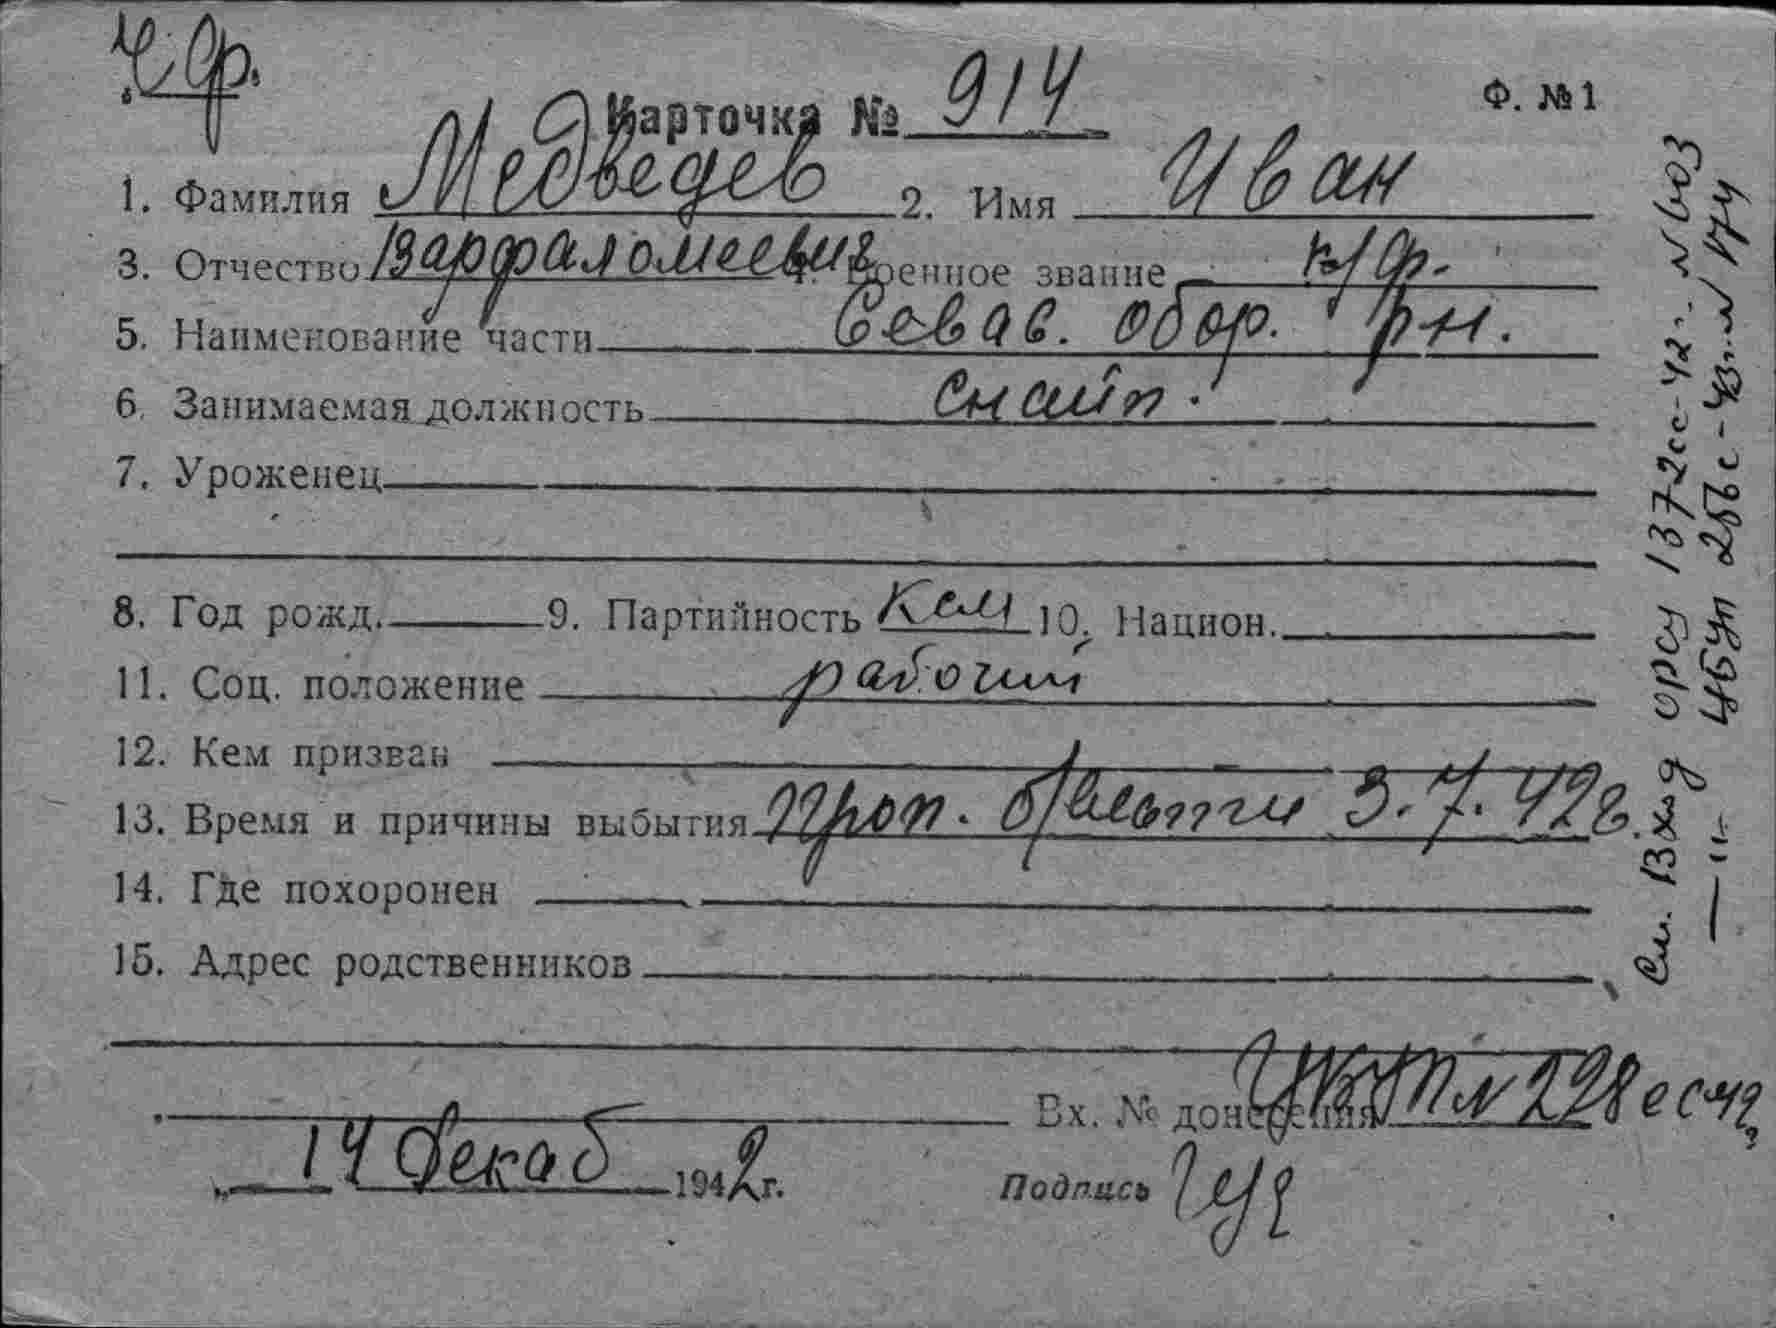 Ч.Ф.
Карточка № 914 Ф. №1
1. Фамилия Медведев 2. Имя Иван
3. Отчество Варфаломеевич 4. Военное звание к/ф.
5. Наименование части Севас. обор. рн.
6. Занимаемая должность
7. Уроженец
8. Год рожд. 9. Партийность 10. Национ.
11. Соц. положение рабочий
12. Кем призван
13. Время и причины выбытия Проп. б/вести 3.7.42г.
14. Где похоронен
15. Адрес родственников
Вх. № донесения № 228
„ 14 декаб 1942 г. Подпись
См. Вход орсу 1372сс-42г. № 603